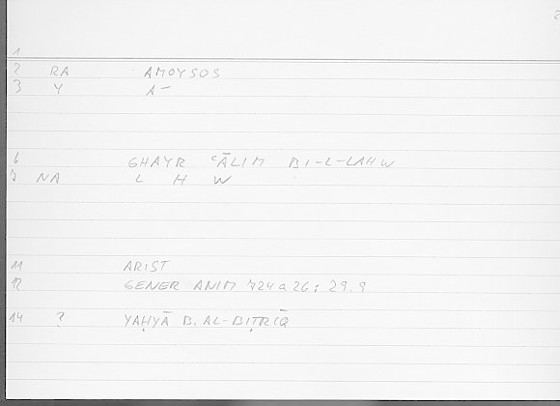 2
1
2 RA AMOYSOS
3 Y A–
6 GHAYR ʿĀLIM BI-L-LAHW
7 NA L H W
11 ARIST
12 GENER ANIM 724a26; 29.9
14 ? YAḤYĀ B. AL-BIṬRĪQ